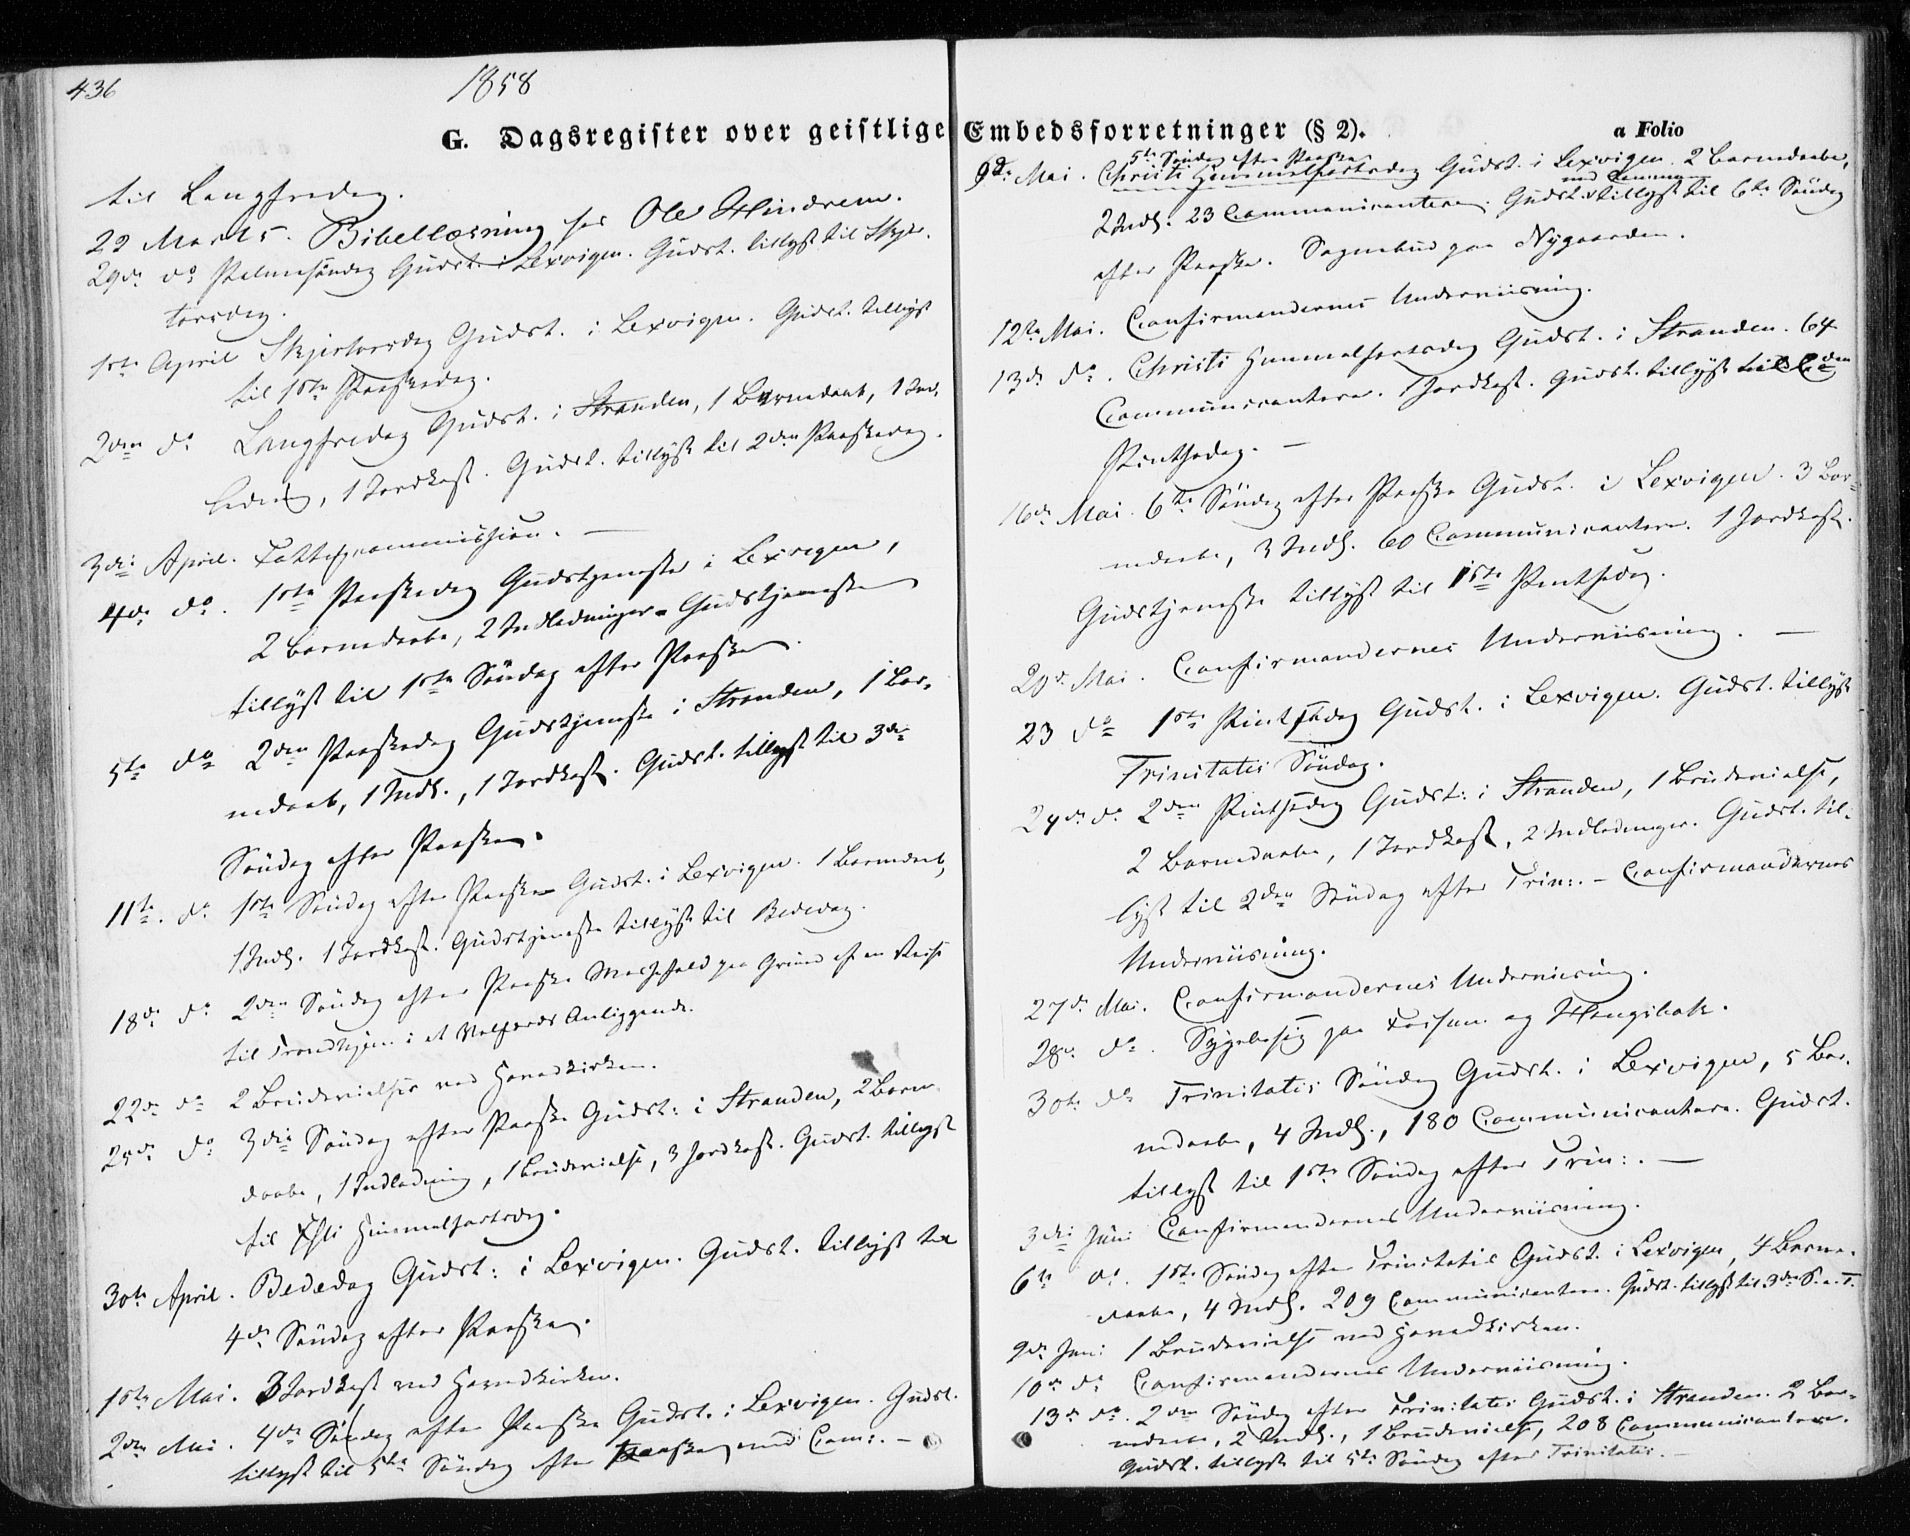 436
1858
G. Dagsregister over geistlige Embedsforretninger (§ 2).
a Folio
til Langfredag.
22 Marts. Bibellæsning hos Ole Hindrem.
29de do Palmesöndag Gudst. i Lexvigen. Gudst. tillyst til Skjær-
torsdag.
1ste April Skjertorsdag Gudst. i Lexvigen. Gudst. tillyst
til 1ste Paaskedag.
2den do Langfredag Gudst. i Stranden, 1 Barnedaab, 1 Ind-
ledning, 1 Jordkast. Gudst. tillyst til 2den Paaskedag.
3die April. Fattigcommission. —
4de do. 1ste Paaskedag Gudstjeneste i Lexvigen,
2 Barnedaabe, 2 Indledninger - Gudstjeneste
tillyst til 1ste Söndag efter Paaske.
5te do 2den Paaskedag Gudstjeneste i Stranden, 1 Bar-
nedaab, 1 Indl., 1 Jordkast. Gudst. tillyst til 3die
Söndag efter Paaske.
11te do 1ste Söndag efter Paaske Gudst. i Lexvigen. 1 Barnedaab,
1 Indl. 1 Jordkast. Gudstjeneste tillyst til Bededag.
18de do 2den Söndag efter Paaske Messefald paa Grund af en Reise
til Trondhjem i et Velfærds Anliggende.
22de do 2 Brudevielser ved Hovedkirken.
25de do 3die Söndag efter Paaske Gudst: i Stranden, 2 Barne-
daabe, 1 Indledning, 1 Brudevielse, 3 Jordkast. Gudst. tillyst
til Chsti Himmelfartsdag.
30te April. Bededag Gudst: i Lexvigen. Gudst. tillyst til
4de Söndag efter Paaske.
1ste Mai. 3 Jordkast ved Hovedkirken.
2den Mai. 4de Söndag efter Paaske Gudst. i Lexvigen. Gudst.
tillyst til 5te Söndag efter Paaske med Com: . —
5te Söndag efter Paaske
9de Mai. Christi Himmelfartsdag Gudst. i Lexvigen. 2 Barnedaabe,
2 Indl. 23 Communicantere. Gudst. tillyst til 6te Söndag
efter Paaske. Sognebud paa Nygaarden.
12te Mai. Confirmandernes Underviisning.
13de do. Christi Himmelfartsdag Gudst. i Stranden. 64
Communicantere. 1 Jordkast. Gudst. tillyst til 2den
Pintsedag. —
16de Mai. 6te Söndag efter Paaske Gudst. i Lexvigen. 3 Bar-
nedaabe, 3 Indl. 60 Communicantere. 1 Jordkast.
Gudstjeneste tillyst til 1ste Pintsedag.
20de Mai. Confirmandernes Underviisning. —
23 do 1ste Pintsedag Gudst. i Lexvigen. Gudst. tillyst
Trinitatis Söndag.
24de do 2den Pintsedag Gudst: i Stranden, 1 Brudevielse,
2 Barnedaabe, 1 Jordkast, 2 Indledninger. Gudst. til-
lyst til 2den Söndag efter Trin: . — Confirmandernes
Underviisning.
27de Mai. Confirmandernes Underviisning.
28de do. Sygebesög paa og
30te do Trinitatis Söndag Gudst. i Lexvigen, 5 Bar-
nedaabe, 4 Indl., 180 Communicantere. Gudst.
tillyst til 1ste Söndag efter Trin: . —
3die Juni Confirmandernes Underviisning.
6te do. 1ste Söndag efter Trinitatis Gudst. i Lexvigen, 4 Barne-
daabe, 4 Indl. 209 Communicantere. Gudst. tillyst til 3die S. e. T.
9de Juni 1 Brudevielse ved Hovedkirken.
10de do Confirmandernes Underviisning.
13de do. 2den Söndag efter Trinitatis Gudst. i Stranden. 2 Bar-
nedaabe, 2 Indl., 1 Brudevielse, 208 Communicantere.
Gudst. tillyst til 5te Söndag efter Trinitatis. —